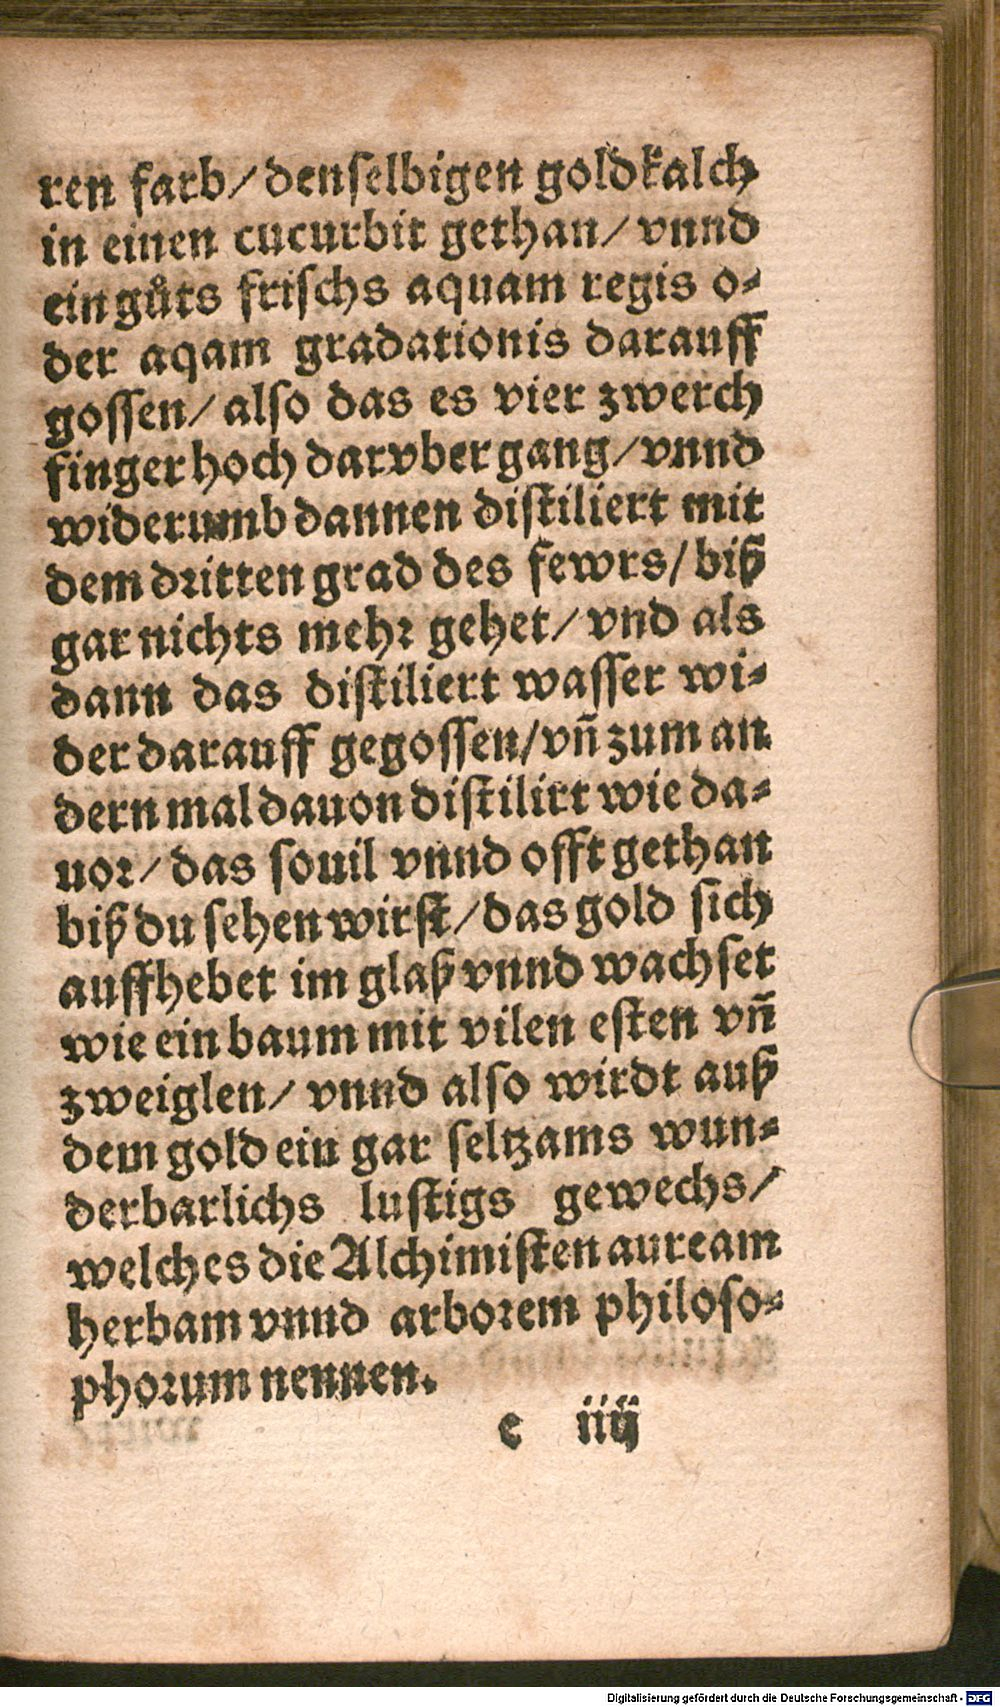 ren farb/ denselbigen goldkalch
in einen cucurbit gethan/ vnnd
ein gůts frischs aquam regis o-
der aqam gradationis darauff
gossen/ also das es vier zwerch
finger hoch darvber gang/ vnnd
widerumb dannen distiliert mit
dem dritten grad des fewrs/ biß
gar nichts mehr gehet/ vnd als
dann das distiliert wasser wi-
der darauff gegossen/ vñ zum an
dern mal dauon distilirt wie da-
uor/ das souil vnnd offt gethan
biß du sehen wirst/ das gold sich
auffhebet im glaß vnnd wachset
wie ein baum mit vilen esten vñ
zweiglen/ vnnd also wirdt auß
dem gold ein gar seltzams wun-
derbarlichs lustigs gewechs/
welches die Alchimisten auream
herbam vnnd arborem philoso-
phorum nennen.
c iiij
Digitalisierung gefördert durch die Deutsche Forschungsgemeinschaft - DFG